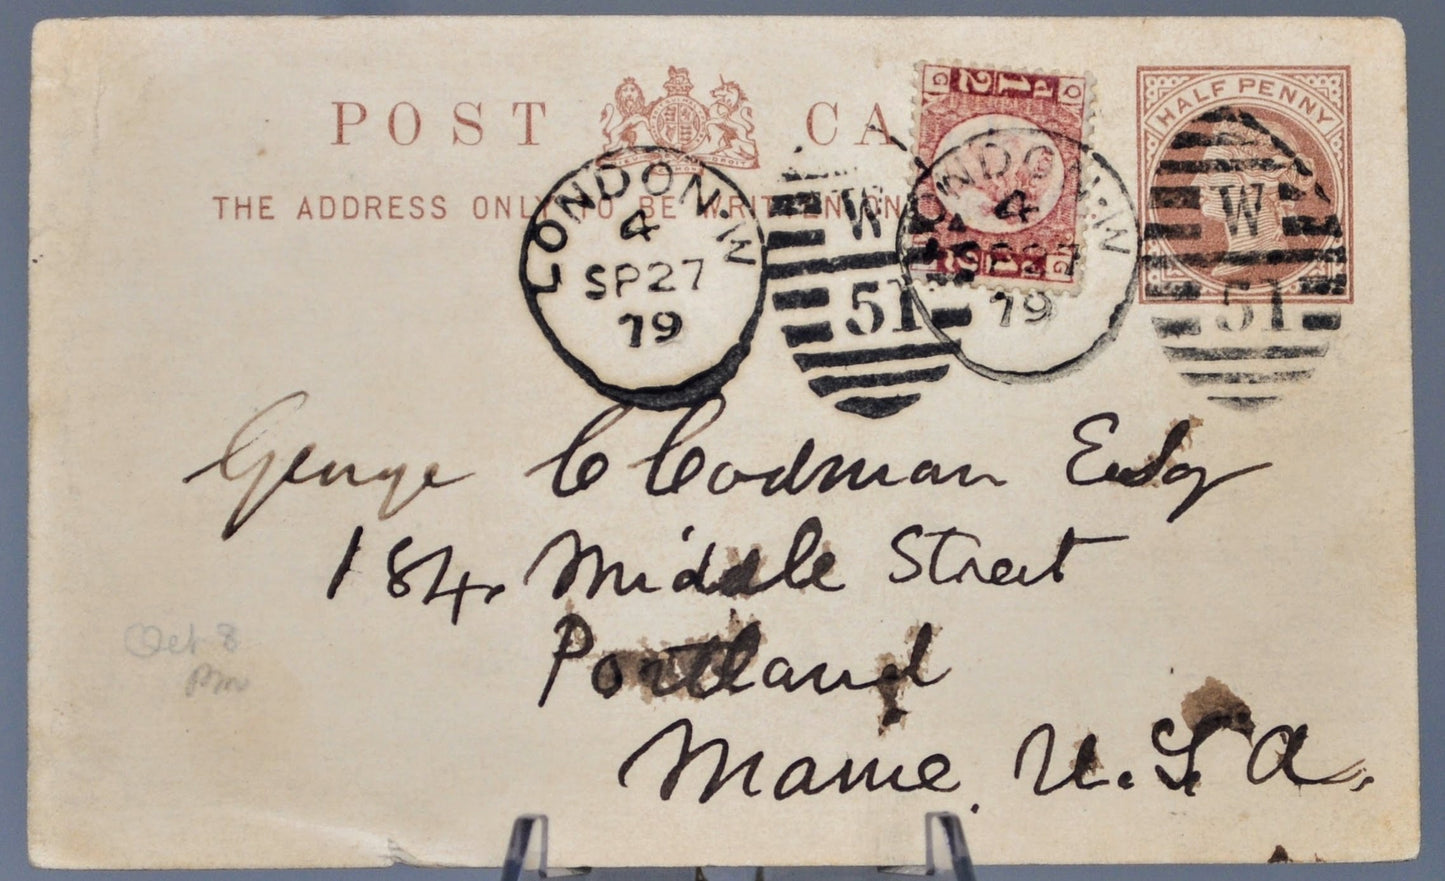 POST CA
HALF PENNY
THE ADDRESS ONLY TO BE WRITTEN ON
LONDON.W
4
SP27
79
W
51
LONDON.W
4
SP27
79
W
51
George C Codman Esq
184, Middle Street
Portland
Maine. U.S.A.
Oct 8
Pm